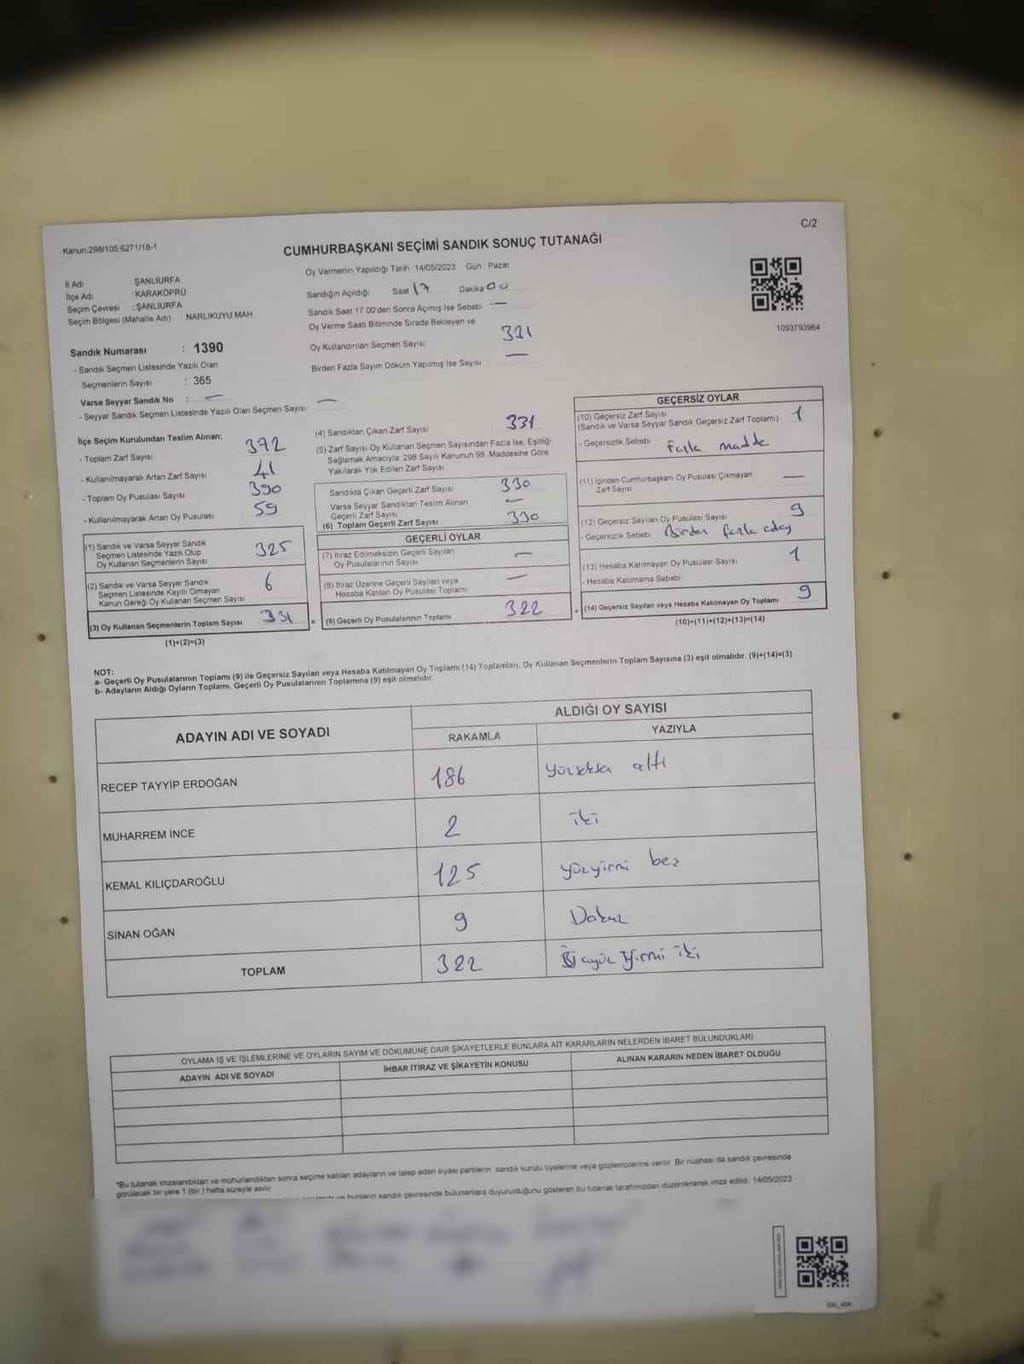 C/2
Kanun:298/105 6271/18-1
CUMHURBAŞKANI SEÇİMİ SANDIK SONUÇ TUTANAĞI
İl Adı : ŞANLIURFA
İlçe Adı : KARAKÖPRÜ
Seçim Çevresi : ŞANLIURFA
Seçim Bölgesi (Mahalle Adı) NARLIKUYU MAH
Sandık Numarası : 1390
- Sandık Seçmen Listesinde Yazılı Olan
Seçmenlerin Sayısı : 365
Varsa Seyyar Sandık No : —
- Seyyar Sandık Seçmen Listesinde Yazılı Olan Seçmen Sayısı —
Oy Vermenin Yapıldığı Tarih 14/05/2023 Gün Pazar
Sandığın Açıldığı Saat 17 Dakika 00
Sandık Saat 17 00'den Sonra Açılmış İse Sebebi —
Oy Verme Saati Bitiminde Sırada Bekleyen ve
Oy Kullandırılan Seçmen Sayısı 331
Birden Fazla Sayım Döküm Yapılmış İse Sayısı —
1093793964
İlçe Seçim Kurulundan Teslim Alınan;
- Toplam Zarf Sayısı 392
- Kullanılmayarak Artan Zarf Sayısı 41
- Toplam Oy Pusulası Sayısı 390
- Kullanılmayarak Artan Oy Pusulası 59
(1) Sandık ve Varsa Seyyar Sandık
Seçmen Listesinde Yazılı Olup
Oy Kullanan Seçmenlerin Sayısı 325
(2) Sandık ve Varsa Seyyar Sandık
Seçmen Listesinde Kayıtlı Olmayan
Kanun Gereği Oy Kullanan Seçmen Sayısı 6
(3) Oy Kullanan Seçmenlerin Toplam Sayısı 331
(1)+(2)=(3)
(4) Sandıktan Çıkan Zarf Sayısı 331
(5) Zarf Sayısı Oy Kullanan Seçmen Sayısından Fazla İse, Eşitliği
Sağlamak Amacıyla; 298 Sayılı Kanunun 98. Maddesine Göre
Yakılarak Yok Edilen Zarf Sayısı
Sandıkta Çıkan Geçerli Zarf Sayısı 330
Varsa Seyyar Sandıktan Teslim Alınan
Geçerli Zarf Sayısı —
(6) Toplam Geçerli Zarf Sayısı 330
GEÇERLİ OYLAR
(7) İtiraz Edilmeksizin Geçerli Sayılan
Oy Pusulalarının Sayısı —
(8) İtiraz Üzerine Geçerli Sayılan veya
Hesaba Katılan Oy Pusulası Toplamı —
(9) Geçerli Oy Pusulalarının Toplamı 322
GEÇERSİZ OYLAR
(10) Geçersiz Zarf Sayısı
(Sandık ve Varsa Seyyar Sandık Geçersiz Zarf Toplamı) 1
- Geçersizlik Sebebi Fazla madde
(11) İçinden Cumhurbaşkanı Oy Pusulası Çıkmayan
Zarf Sayısı —
(12) Geçersiz Sayılan Oy Pusulası Sayısı 9
- Geçersizlik Sebebi Birden fazla aday
(13) Hesaba Katılmayan Oy Pusulası Sayısı 1
- Hesaba Katılmama Sebebi
(14) Geçersiz Sayılan veya Hesaba Katılmayan Oy Toplamı 9
(10)+(11)+(12)+(13)=(14)
NOT:
a- Geçerli Oy Pusulalarının Toplamı (9) ile Geçersiz Sayılan veya Hesaba Katılmayan Oy Toplamı (14) Toplamları, Oy Kullanan Seçmenlerin Toplam Sayısına (3) eşit olmalıdır. (9)+(14)=(3)
b- Adayların Aldığı Oyların Toplamı, Geçerli Oy Pusulalarının Toplamına (9) eşit olmalıdır.
ADAYIN ADI VE SOYADI
ALDIĞI OY SAYISI
RAKAMLA YAZIYLA
RECEP TAYYİP ERDOĞAN 186 yüzseksen altı
MUHARREM İNCE 2 iki
KEMAL KILIÇDAROĞLU 125 yüzyirmi beş
SİNAN OĞAN 9 Dokuz
TOPLAM 322 üçyüz yirmi iki
OYLAMA İŞ VE İŞLEMLERİNE VE OYLARIN SAYIM VE DÖKÜMÜNE DAİR ŞİKAYETLERLE BUNLARA AİT KARARLARIN NELERDEN İBARET BULUNDUKLARI
ADAYIN ADI VE SOYADI İHBAR İTİRAZ VE ŞİKAYETİN KONUSU ALINAN KARARIN NEDEN İBARET OLDUĞU
*Bu tutanak imzalandıktan ve mühürlendikten sonra seçime katılan adayların ve talep eden siyasi partilerin sandık kurulu üyelerine veya gözlemcilerine verilir. Bir nüshası da sandık çevresinde
görülecek bir yere 1 (bir ) hafta süreyle asılır.
ve bunların sandık çevresinde bulunanlara duyurulduğunu gösteren bu tutanak tarafımızdan düzenlenerek imza edildi. 14/05/2023